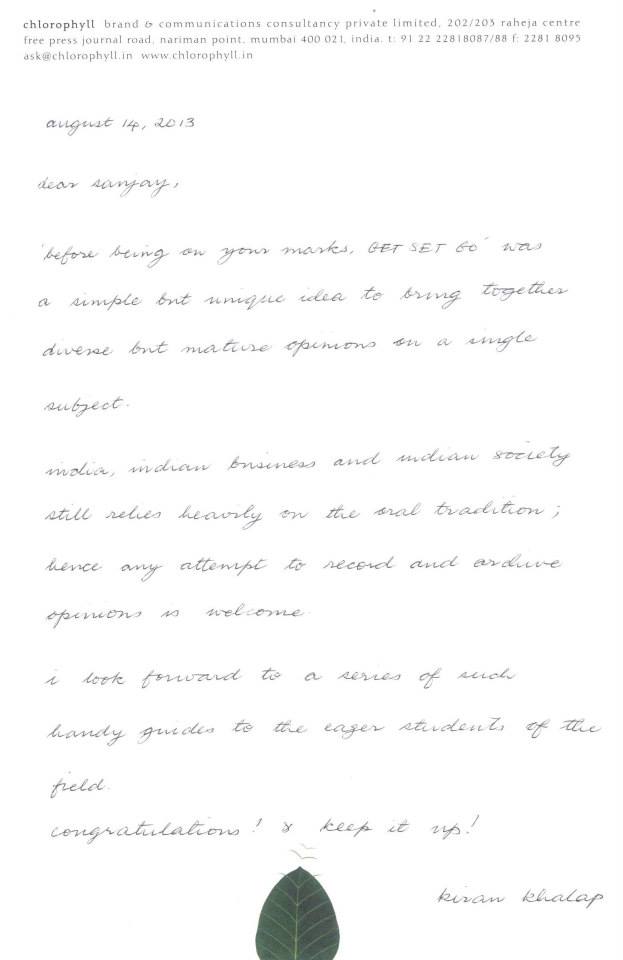 chlorophyll brand & communications consultancy private limited, 202/203 raheja centre
free press journal road, nariman point, mumbai 400 021, india. t: 91 22 22818087/88 f: 2281 8095
ask@chlorophyll.in www.chlorophyll.in
august 14, 2013
dear sanjay,
'before being on your marks, GET SET GO' was
a simple but unique idea to bring together
diverse but mature opinions on a single
subject.
india, indian business and indian society
still relies heavily on the oral tradition;
hence any attempt to record and archive
opinions is welcome.
i look forward to a series of such
handy guides to the eager students of the
field.
congratulations! & keep it up!
kiran khalap